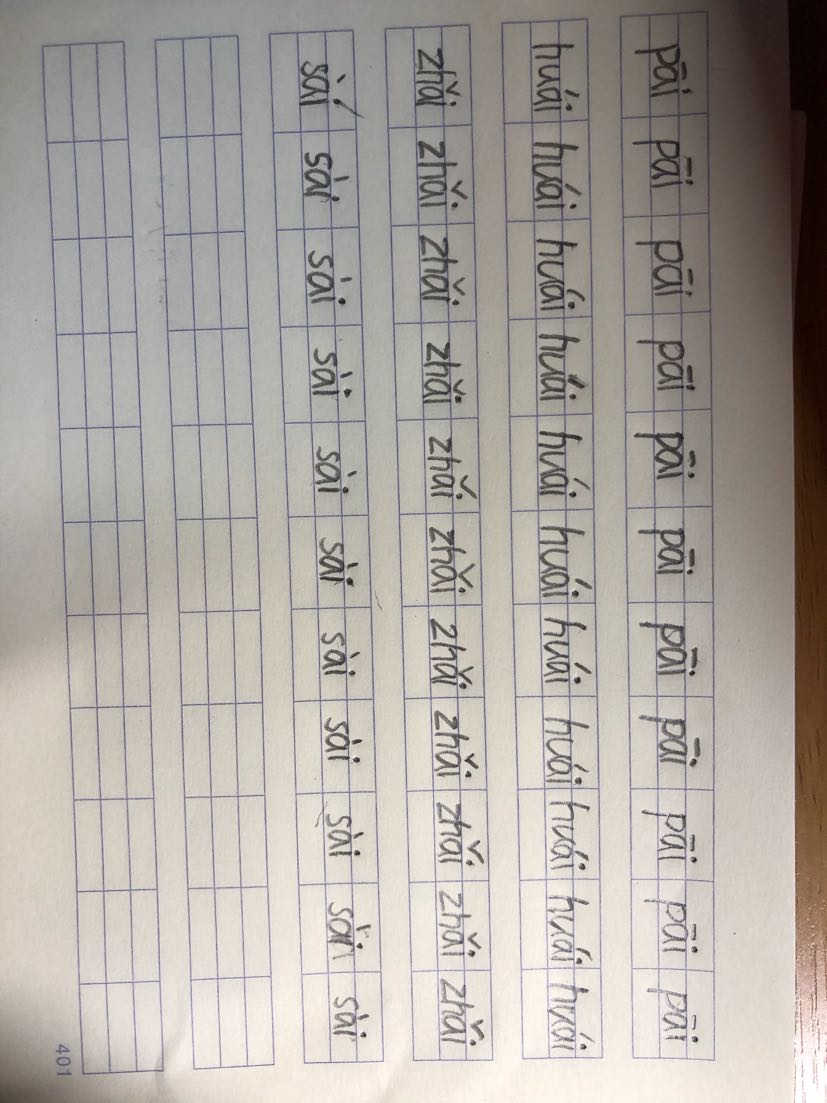 pāi pāi pāi pāi pāi pāi pāi pāi pāi pāi pāi
huái huái huái huái huái huái huái huái huái huái huái
zhǎi zhǎi zhǎi zhǎi zhǎi zhǎi zhǎi zhǎi zhǎi zhǎi zhǎi
sài sài sài sài sài sài sài sài sài sài sài
401